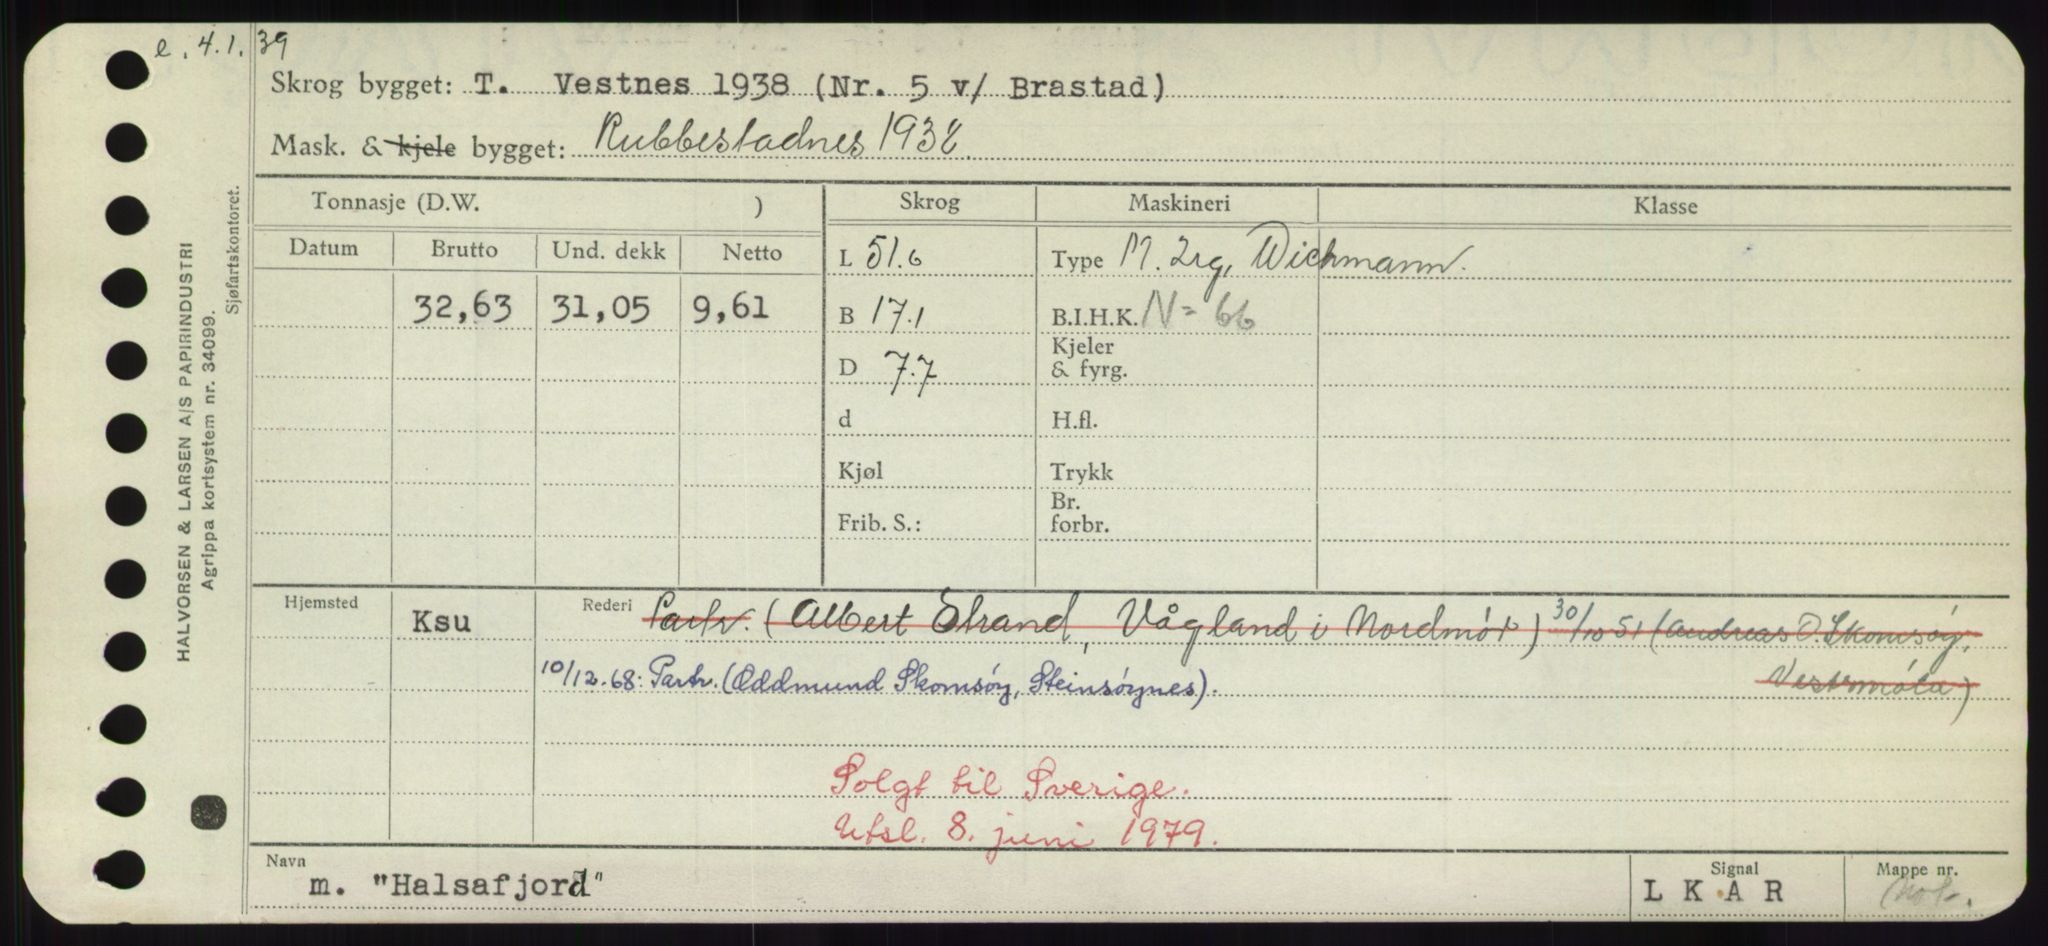 e. 4.1.39
Skrog bygget: T. Vestnes 1938 (Nr. 5 v/ Brastad)
Mask. & kjele bygget: Rubbestadnes 1938.
HALVORSEN & LARSEN A/S PAPIRINDUSTRI
Agrippa kortsystem nr. 34099.
Sjøfartskontoret.
Tonnasje (D.W. ) Skrog Maskineri Klasse
Datum Brutto Und. dekk Netto
L 51.6 Type M. 2rg, Wichmann.
32,63 31,05 9,61 B 17.1 B.I.H.K. N= 66
D 7.7 Kjeler & fyrg.
d H.fl.
Kjøl Trykk
Frib. S.: Br. forbr.
Hjemsted Ksu Rederi Partr. (Albert Strand, Vågland i Nordmør) 30/10 51 (Andreas O. Skomsøy,
Vestsmøla)
10/12.68: Partr. (Oddmund Skomsøy, Steinsøynes).
Solgt til Sverige.
Utsl. 8. juni 1979.
Navn Signal Mappe nr.
m. "Halsafjord" L K A R